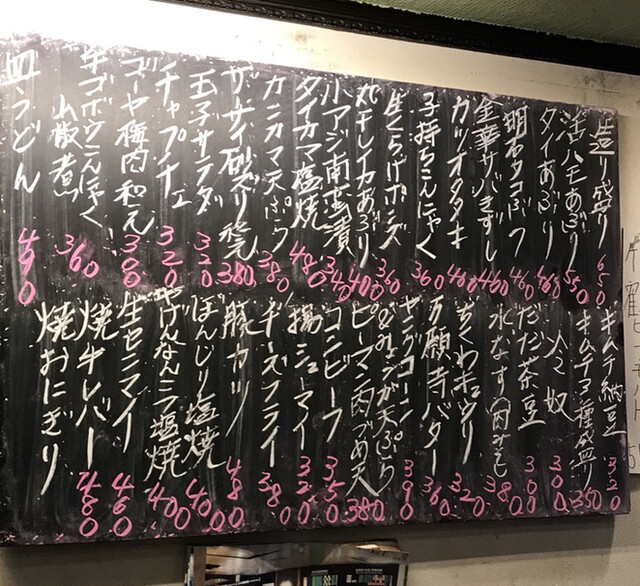 造り盛り 650
活ハモあぶり 550
タイあぶり 460
明石タコぶつ 460
金華サバきずし 460
カツオタタキ 460
子持ちこんにゃく 360
生くらげポンズ 360
丸干しイカあぶり 400
小アジ南蛮漬 340
タイカマ塩焼 480
カニカマ天ぷら 380
ザーサイ砂ズリ和え 380
玉子サラダ 320
チャプチェ 320
ゴーヤ梅肉和え 300
牛ゴボウこんにゃく
山椒煮 360
皿うどん 490
キムチ納豆 320
キムチ三種盛り 350
冷奴 300
だだ茶豆 300
水なす肉みそ 380
ちくわキュウリ 320
万願寺バター 360
ヤングコーン
みょうが天ぷら 390
ピーマン肉づめ天 380
コンビーフ 350
揚シューマイ 320
チーズフライ 380
豚カツ 480
ぼんじり塩焼 400
やげんなんこつ塩焼 400
生センマイ 460
焼牛レバー 480
焼おにぎり